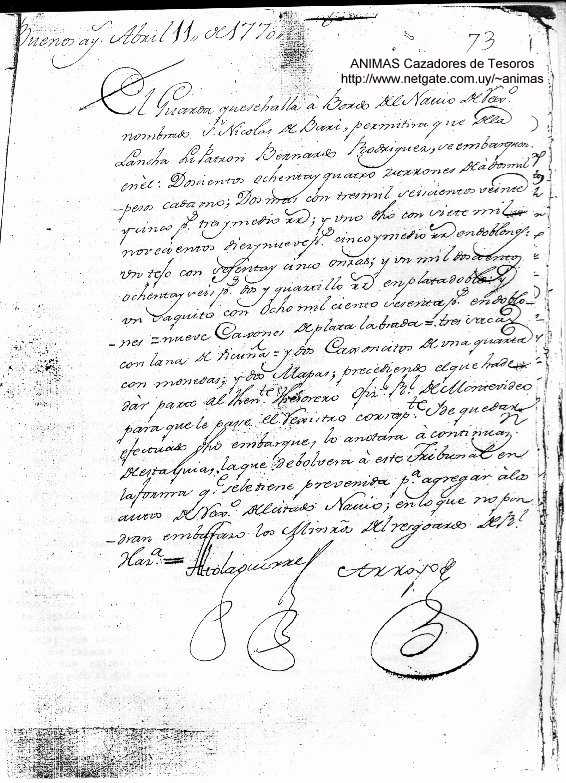 Buenos ay.s Abril 11,, de 1770
73
ANIMAS Cazadores de Tesoros
http://www.netgate.com.uy/~animas
El Guarda que se halla à Bordo del Navio de
nombrado S.n Nicolas de Bari, permitira que de la
Lancha su Patron Bernardo Rodriguez, se embarquen
en èl: Doscientos ochenta y quatro zurrones de à dos mil
pesos cada uno; Dos mas con tres mil seiscientos veinte
y cinco p.s tres y medio rr.s; y uno dho con siete mil
novecientos diez y nueve p.s cinco y medio rr.s en doblon.s;
un tejo con sesenta y cinco onzas; y un mil doscientos
ochenta y seis p.s dos y quartillo rr.s en plata doble; y
un saquito con ocho mil ciento sesenta p.s en doblo-
-nes = nueve Caxones de plata labrada = tres sacas
con lana de vicuña = y dos Caxoncitos de una quarta
con monedas; y dos Mapas; precediendo el que ha de
dàr parte al Then.te Thesorero ofi.l R.l de Montevideo
para que le pase el Registro corresp.te y de quedar
efectuado dho embarque, lo anotara à continuaz.n
de esta guia, la que debolverà à este Tribunal en
la forma q.e se le tiene prevenida p.a agregar à los
autos de del citado Navio; en lo que no pon-
-dran embarazo los Minis.s del resguardo de R.l
Haz.a =
Arroyo